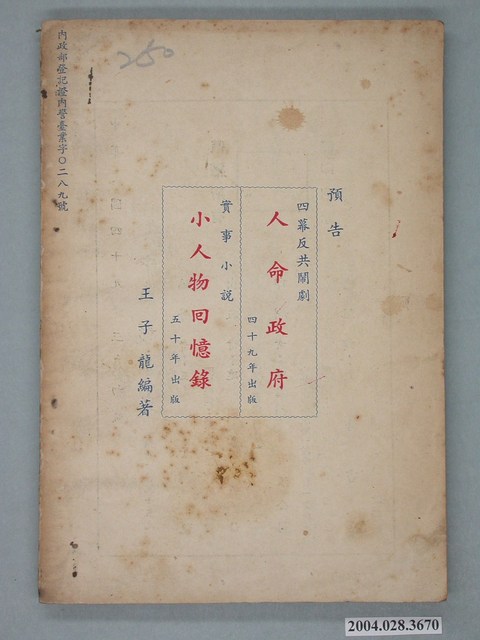 250
預告
四幕反共鬧劇
人命政府
四十九年出版
實事小說
小人物回憶錄
五十年出版
王子龍編著
內政部登記證內警臺業字〇二八九號
2004.028.3670